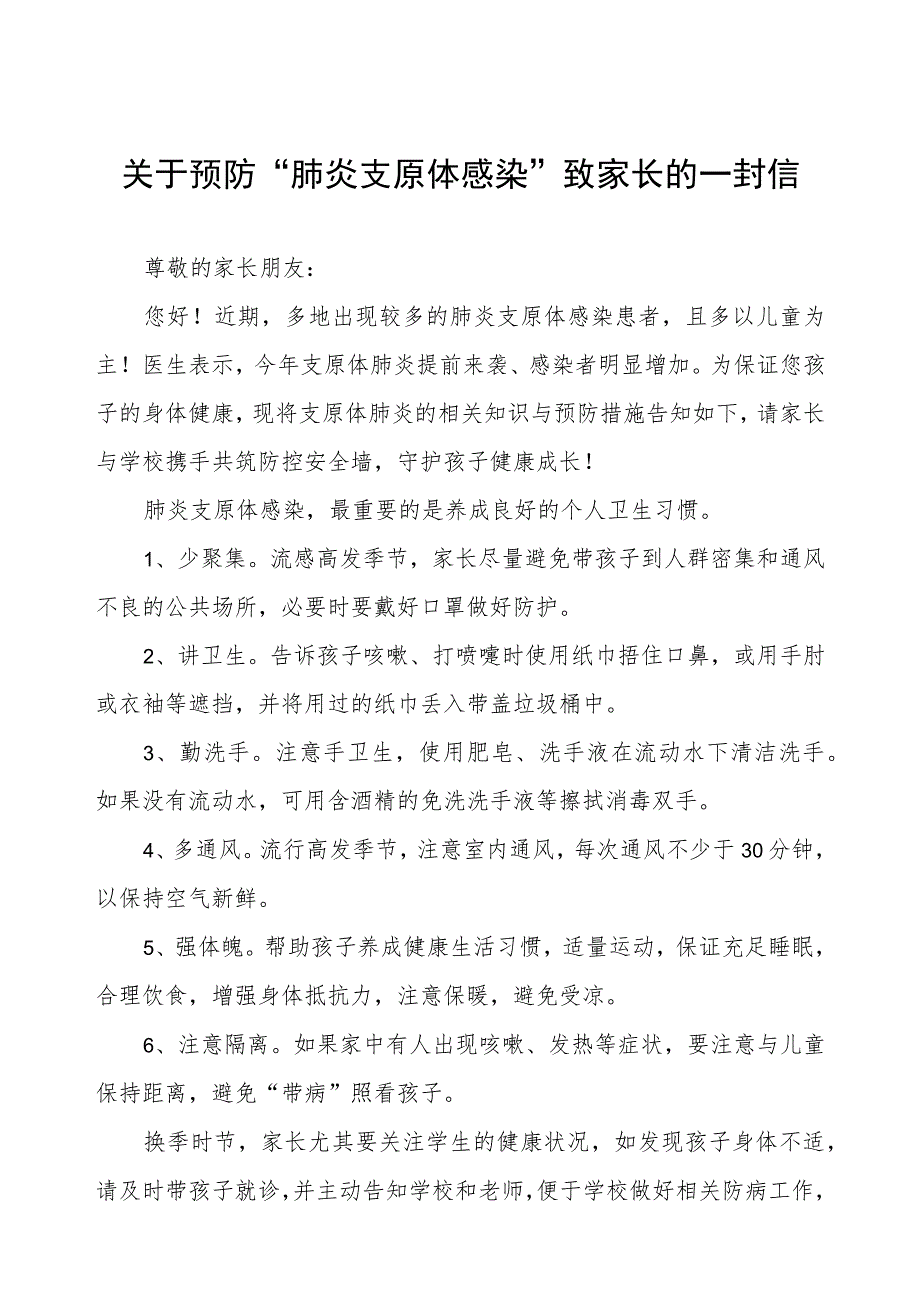 关于预防“肺炎支原体感染”致家长的一封信
尊敬的家长朋友：
您好！近期，多地出现较多的肺炎支原体感染患者，且多以儿童为
主！医生表示，今年支原体肺炎提前来袭、感染者明显增加。为保证您孩
子的身体健康，现将支原体肺炎的相关知识与预防措施告知如下，请家长
与学校携手共筑防控安全墙，守护孩子健康成长！
肺炎支原体感染，最重要的是养成良好的个人卫生习惯。
1、少聚集。流感高发季节，家长尽量避免带孩子到人群密集和通风
不良的公共场所，必要时要戴好口罩做好防护。
2、讲卫生。告诉孩子咳嗽、打喷嚏时使用纸巾捂住口鼻，或用手肘
或衣袖等遮挡，并将用过的纸巾丢入带盖垃圾桶中。
3、勤洗手。注意手卫生，使用肥皂、洗手液在流动水下清洁洗手。
如果没有流动水，可用含酒精的免洗洗手液等擦拭消毒双手。
4、多通风。流行高发季节，注意室内通风，每次通风不少于30分钟，
以保持空气新鲜。
5、强体魄。帮助孩子养成健康生活习惯，适量运动，保证充足睡眠，
合理饮食，增强身体抵抗力，注意保暖，避免受凉。
6、注意隔离。如果家中有人出现咳嗽、发热等症状，要注意与儿童
保持距离，避免“带病”照看孩子。
换季时节，家长尤其要关注学生的健康状况，如发现孩子身体不适，
请及时带孩子就诊，并主动告知学校和老师，便于学校做好相关防病工作，